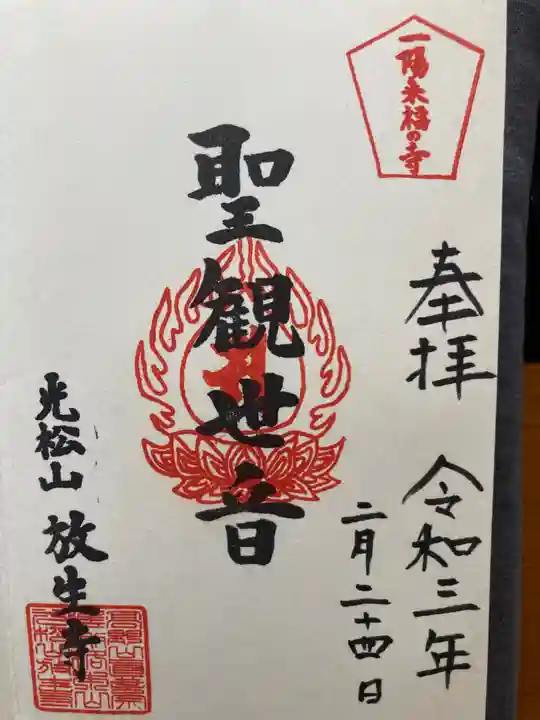 一陽来福の寺
奉拝 令和三年
二月二十四日
聖観世音
光松山 放生寺